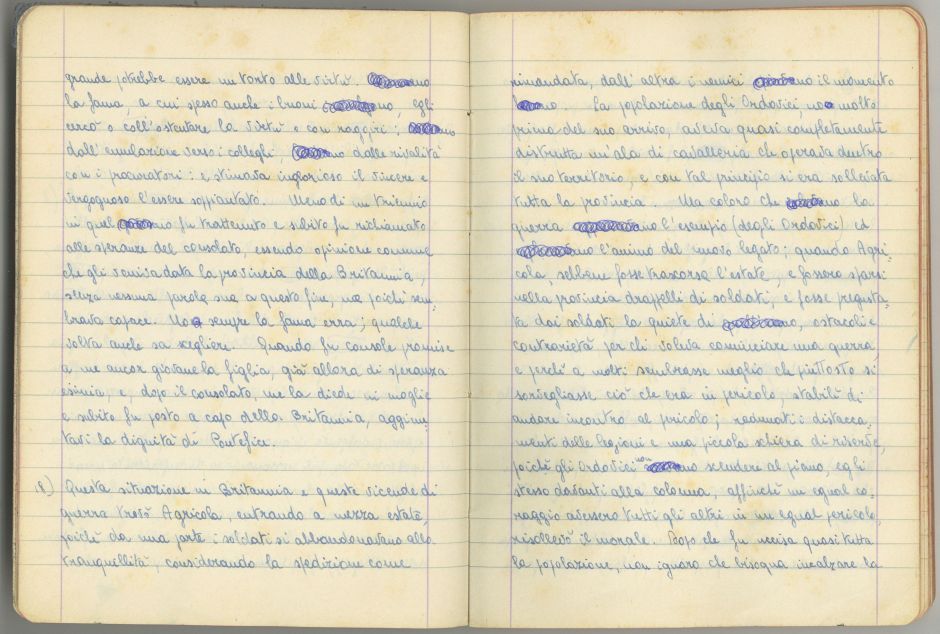 grande potrebbe essere un torto alle virtù. no
la fama, a cui spesso anche i buoni no, egli
cercò o coll'ostentare la virtù o con raggiri; no
dall'emulazione verso i colleghi. no dalle rivalità
con i procuratori: e stimava inglorioso il vincere e
vergognoso l'essere soppiantato. Meno di un triennio
in quel no fu trattenuto e subito fu richiamato
alle speranze del consolato, essendo opinione comune
che gli veniva data la provincia della Britannia,
senza nessuna parola sua a questo fine, ma poiché sem
brava capace. No sempre la fama erra; qualche
volta anche sa scegliere. Quando fu console promise
a me ancor giovane la figlia, già allora di speranza
esimia, e, dopo il consolato, me la diede in moglie
e subito fu posto a capo della Britannia, aggiun
tavi la dignità di Pontefice.
18) Questa situazione in Britannia e queste vicende di
guerra trovò Agricola, entrando a mezza estate,
poiché da una parte i soldati si abbandonavano alla
tranquillità, considerando la spedizione come
rimandata, dall'altra i nemici no il momento
no. La popolazione degli Ordovici, no molto
prima del suo arrivo, aveva quasi completamente
distrutta un'ala di cavalleria che operava dentro
il suo territorio, e con tal principio si era sollevata
tutta la provincia. Ma coloro che no la
guerra no l'esempio (degli Ordovici) ed
no l'animo del nuovo legato; quando Agri
cola, sebbene fosse trascorsa l'estate, e fossero sparsi
nella provincia drappelli di soldati, e fosse pregusta
ta dai soldati la quiete di no, ostacoli e
contrarietà per chi voleva cominciare una guerra,
e perché a molti sembrasse meglio che piuttosto si
sorvegliasse ciò che era in pericolo, stabilì di
andare incontro al pericolo; radunati i distacca
menti delle legioni e una piccola schiera di riserve,
poiché gli Ordovici non no scendere al piano, egli
stesso davanti alla colonna, affinché un egual co
raggio avessero tutti gli altri in un egual pericolo,
risollevò il morale. Dopo che fu uccisa quasi tutta
la popolazione, non ignaro che bisogna incalzare la